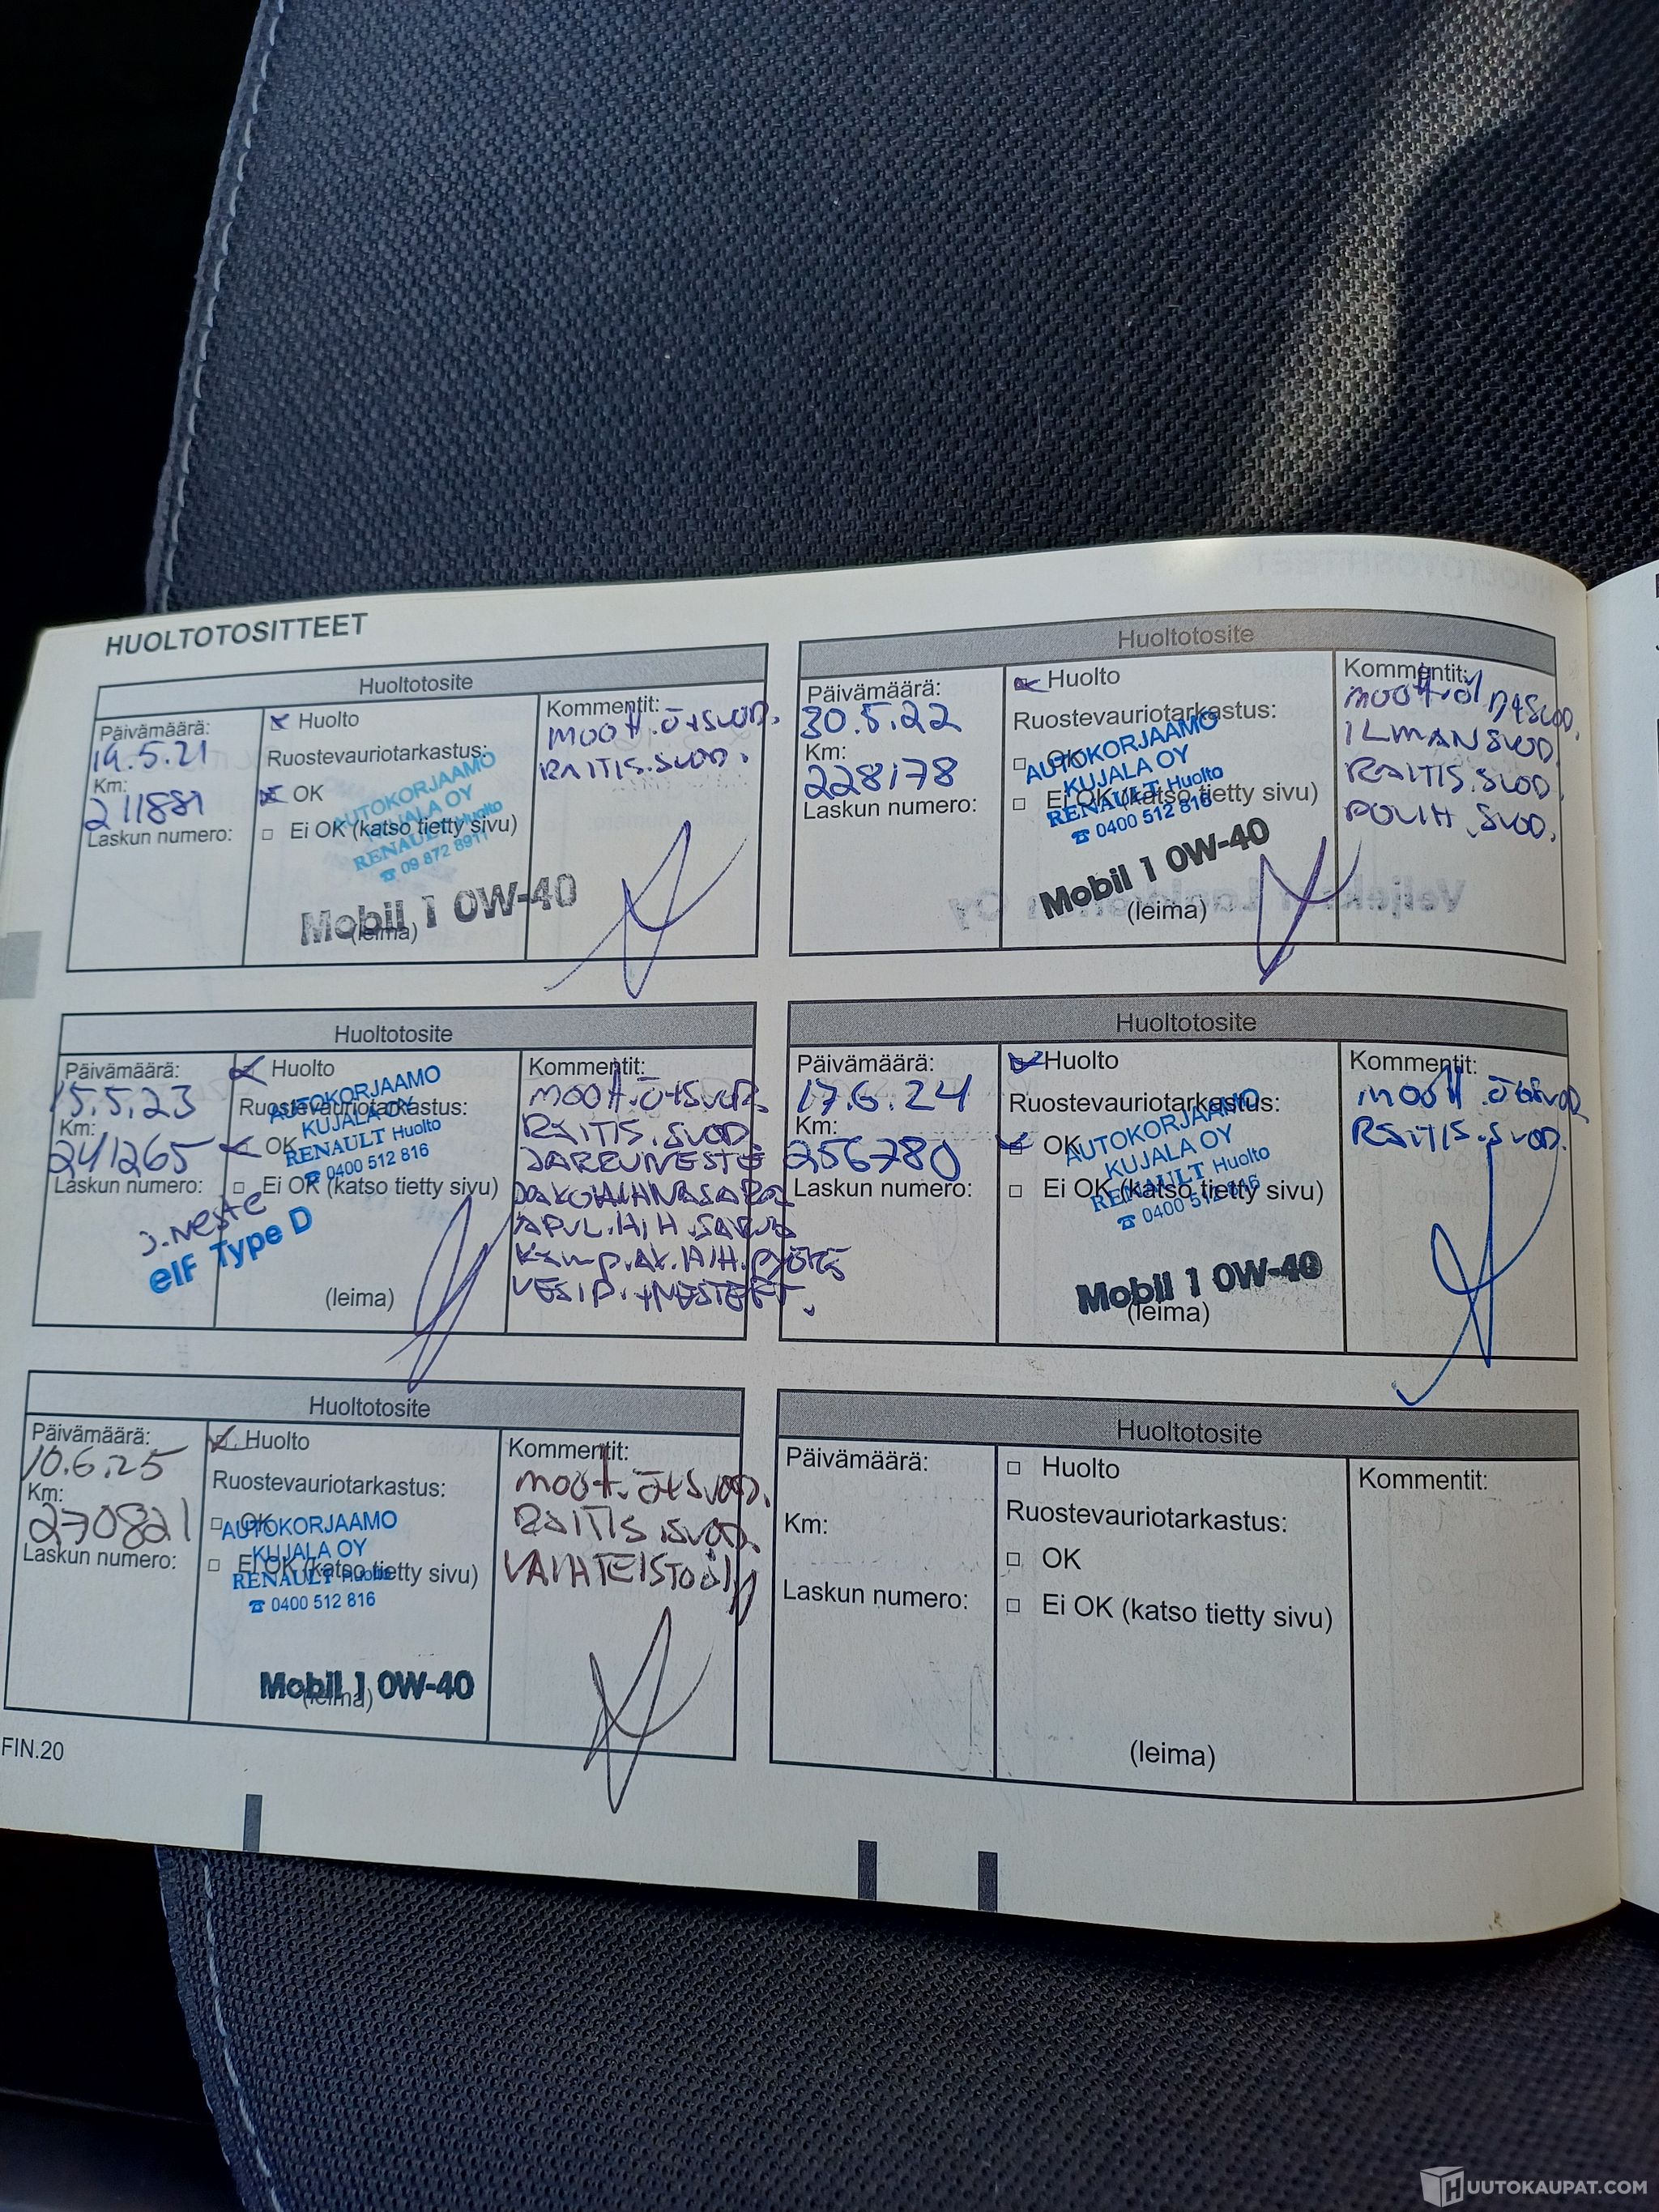 HUOLTOTOSITTEET
Huoltotosite
Päivämäärä:
19.5.21
Km:
211881
Laskun numero:
Huolto
Ruostevauriotarkastus:
OK
Ei OK (katso tietty sivu)
AUTOKORJAAMO
KUJALA OY
RENAULT Huolto
☎ 09 872 8911
Mobil 1 0W-40
(leima)
Kommentit:
MOOTT.Ö+SUOD.
RAITIS.SUOD.
Huoltotosite
Päivämäärä:
30.5.22
Km:
228178
Laskun numero:
Huolto
Ruostevauriotarkastus:
OK
Ei OK (katso tietty sivu)
AUTOKORJAAMO
KUJALA OY
RENAULT Huolto
☎ 0400 512 816
Mobil 1 0W-40
(leima)
Kommentit:
ILMANSUOD.
RAITIS.SUOD.
POLTT.SUOD.
Huoltotosite
Päivämäärä:
15.5.23
Km:
241265
Laskun numero:
J.NESTE
elf Type D
Huolto
Ruostevauriotarkastus:
OK
Ei OK (katso tietty sivu)
AUTOKORJAAMO
KUJALA OY
RENAULT Huolto
☎ 0400 512 816
(leima)
Kommentit:
MOOTT.Ö+SUOD.
RAITIS.SUOD.
JARRUNESTE
JAKOHIHNASARJA
APUL.HIH.SARJA
VESIP.+NESTEET.
Huoltotosite
Päivämäärä:
17.6.24
Km:
256780
Laskun numero:
Huolto
Ruostevauriotarkastus:
OK
Ei OK (katso tietty sivu)
AUTOKORJAAMO
KUJALA OY
RENAULT Huolto
☎ 0400 512 816
Mobil 1 0W-40
(leima)
Kommentit:
MOOTT.Ö+SUOD.
RAITIS.SUOD.
Huoltotosite
Päivämäärä:
10.6.25
Km:
270821
Laskun numero:
Huolto
Ruostevauriotarkastus:
OK
Ei OK (katso tietty sivu)
AUTOKORJAAMO
KUJALA OY
RENAULT Huolto
☎ 0400 512 816
Mobil 1 0W-40
(leima)
Kommentit:
MOOTT.Ö+SUOD.
RAITIS.SUOD.
VAIHTEISTOÖLJY
Huoltotosite
Päivämäärä:
Km:
Laskun numero:
Huolto
Ruostevauriotarkastus:
OK
Ei OK (katso tietty sivu)
(leima)
Kommentit:
FIN.20
HUUTOKAUPAT.COM